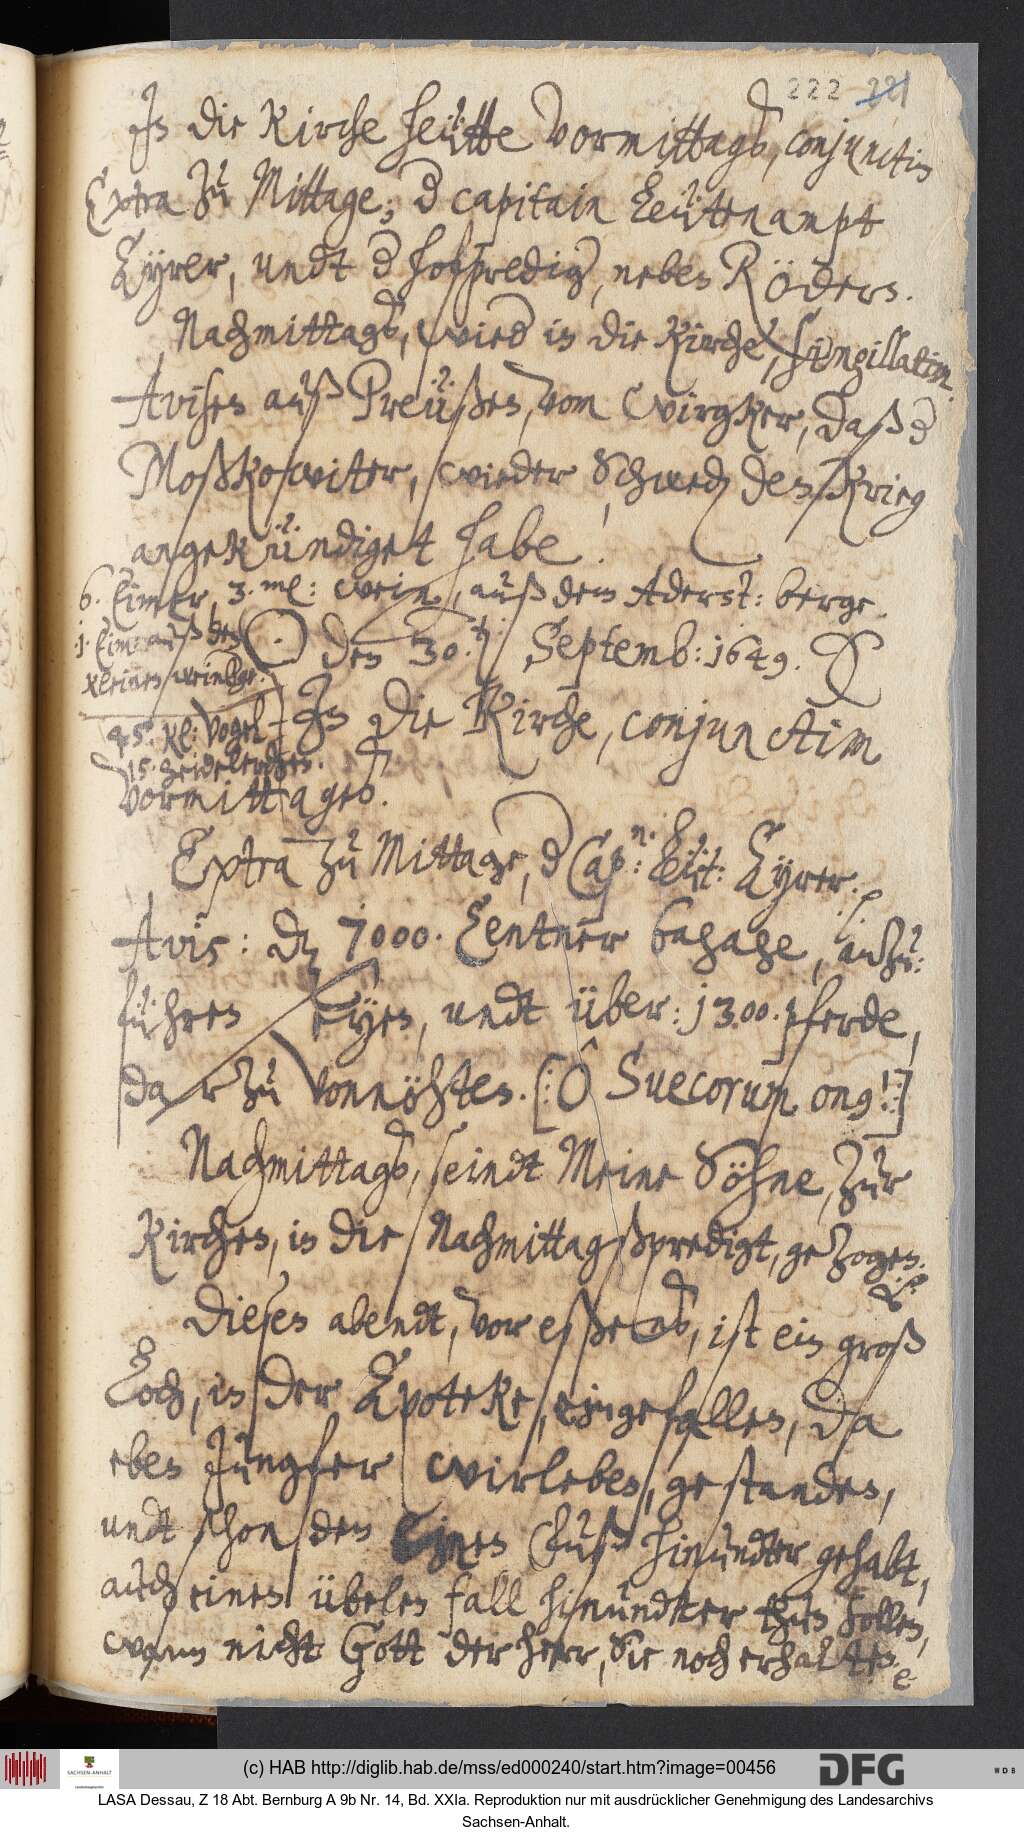 222 221
In die Kirche heütte vormittags, conjunctim
Extra zu Mittage; d capitain Leüttenampt
Eyrer, undt d hofpredig, neben Rödern.
Nachmittags, wied in die Kirche, singillatim.
Avisen auß Preüßen, vom Wirgker, daß d
Moßkowiter, wieder Schwed den Krieg
angekündiget habe.
6. Eimer, 3. ml: wein, auß dem Aderst: berge.
1. Eimer auß des
kleinen weinbge.
45. kl: Vogel
15. heidelerchen.
☉ den 30. Septemb: 1649.
In die Kirche, conjunctim
vormittages.
Extra zu Mittage, d Cap:n. Leüt: Eyrer.
Avis: dz 7000. Centner bagage, antzu:
führen seyen, undt über: 1300. pferde,
darzu vonnöhten. [: O Suecorum ong!:]
Nachmittags, seindt Meine Söhne, zur
Kirchen, in die Nachmittagsspredigt, gezogen.
Diesen abendt, vor eßens, ist ein groß
Loch, in der Apoteke, eingefallen, da
eben Jungfer Wirleben, gestanden,
undt schon den Einen Fuß hinundter gehabt,
auch einen übelen fall hinundter thun sollen,
wann nicht Gott der herr, Sie noch erhalten
(c) HAB http://diglib.hab.de/mss/ed000240/start.htm?image=00456
SACHSEN-ANHALT
DFG
WDB
LASA Dessau, Z 18 Abt. Bernburg A 9b Nr. 14, Bd. XXIa. Reproduktion nur mit ausdrücklicher Genehmigung des Landesarchivs
Sachsen-Anhalt.